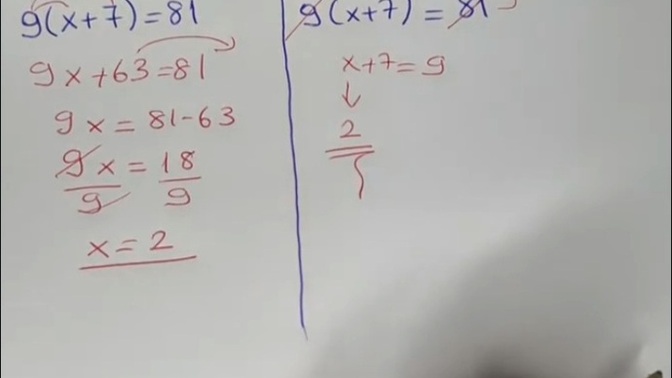 9(x+7)=81
9x+63=81
9x=81-63
9x/9=18/9
x=2
9(x+7)=81
x+7=9
↓
2